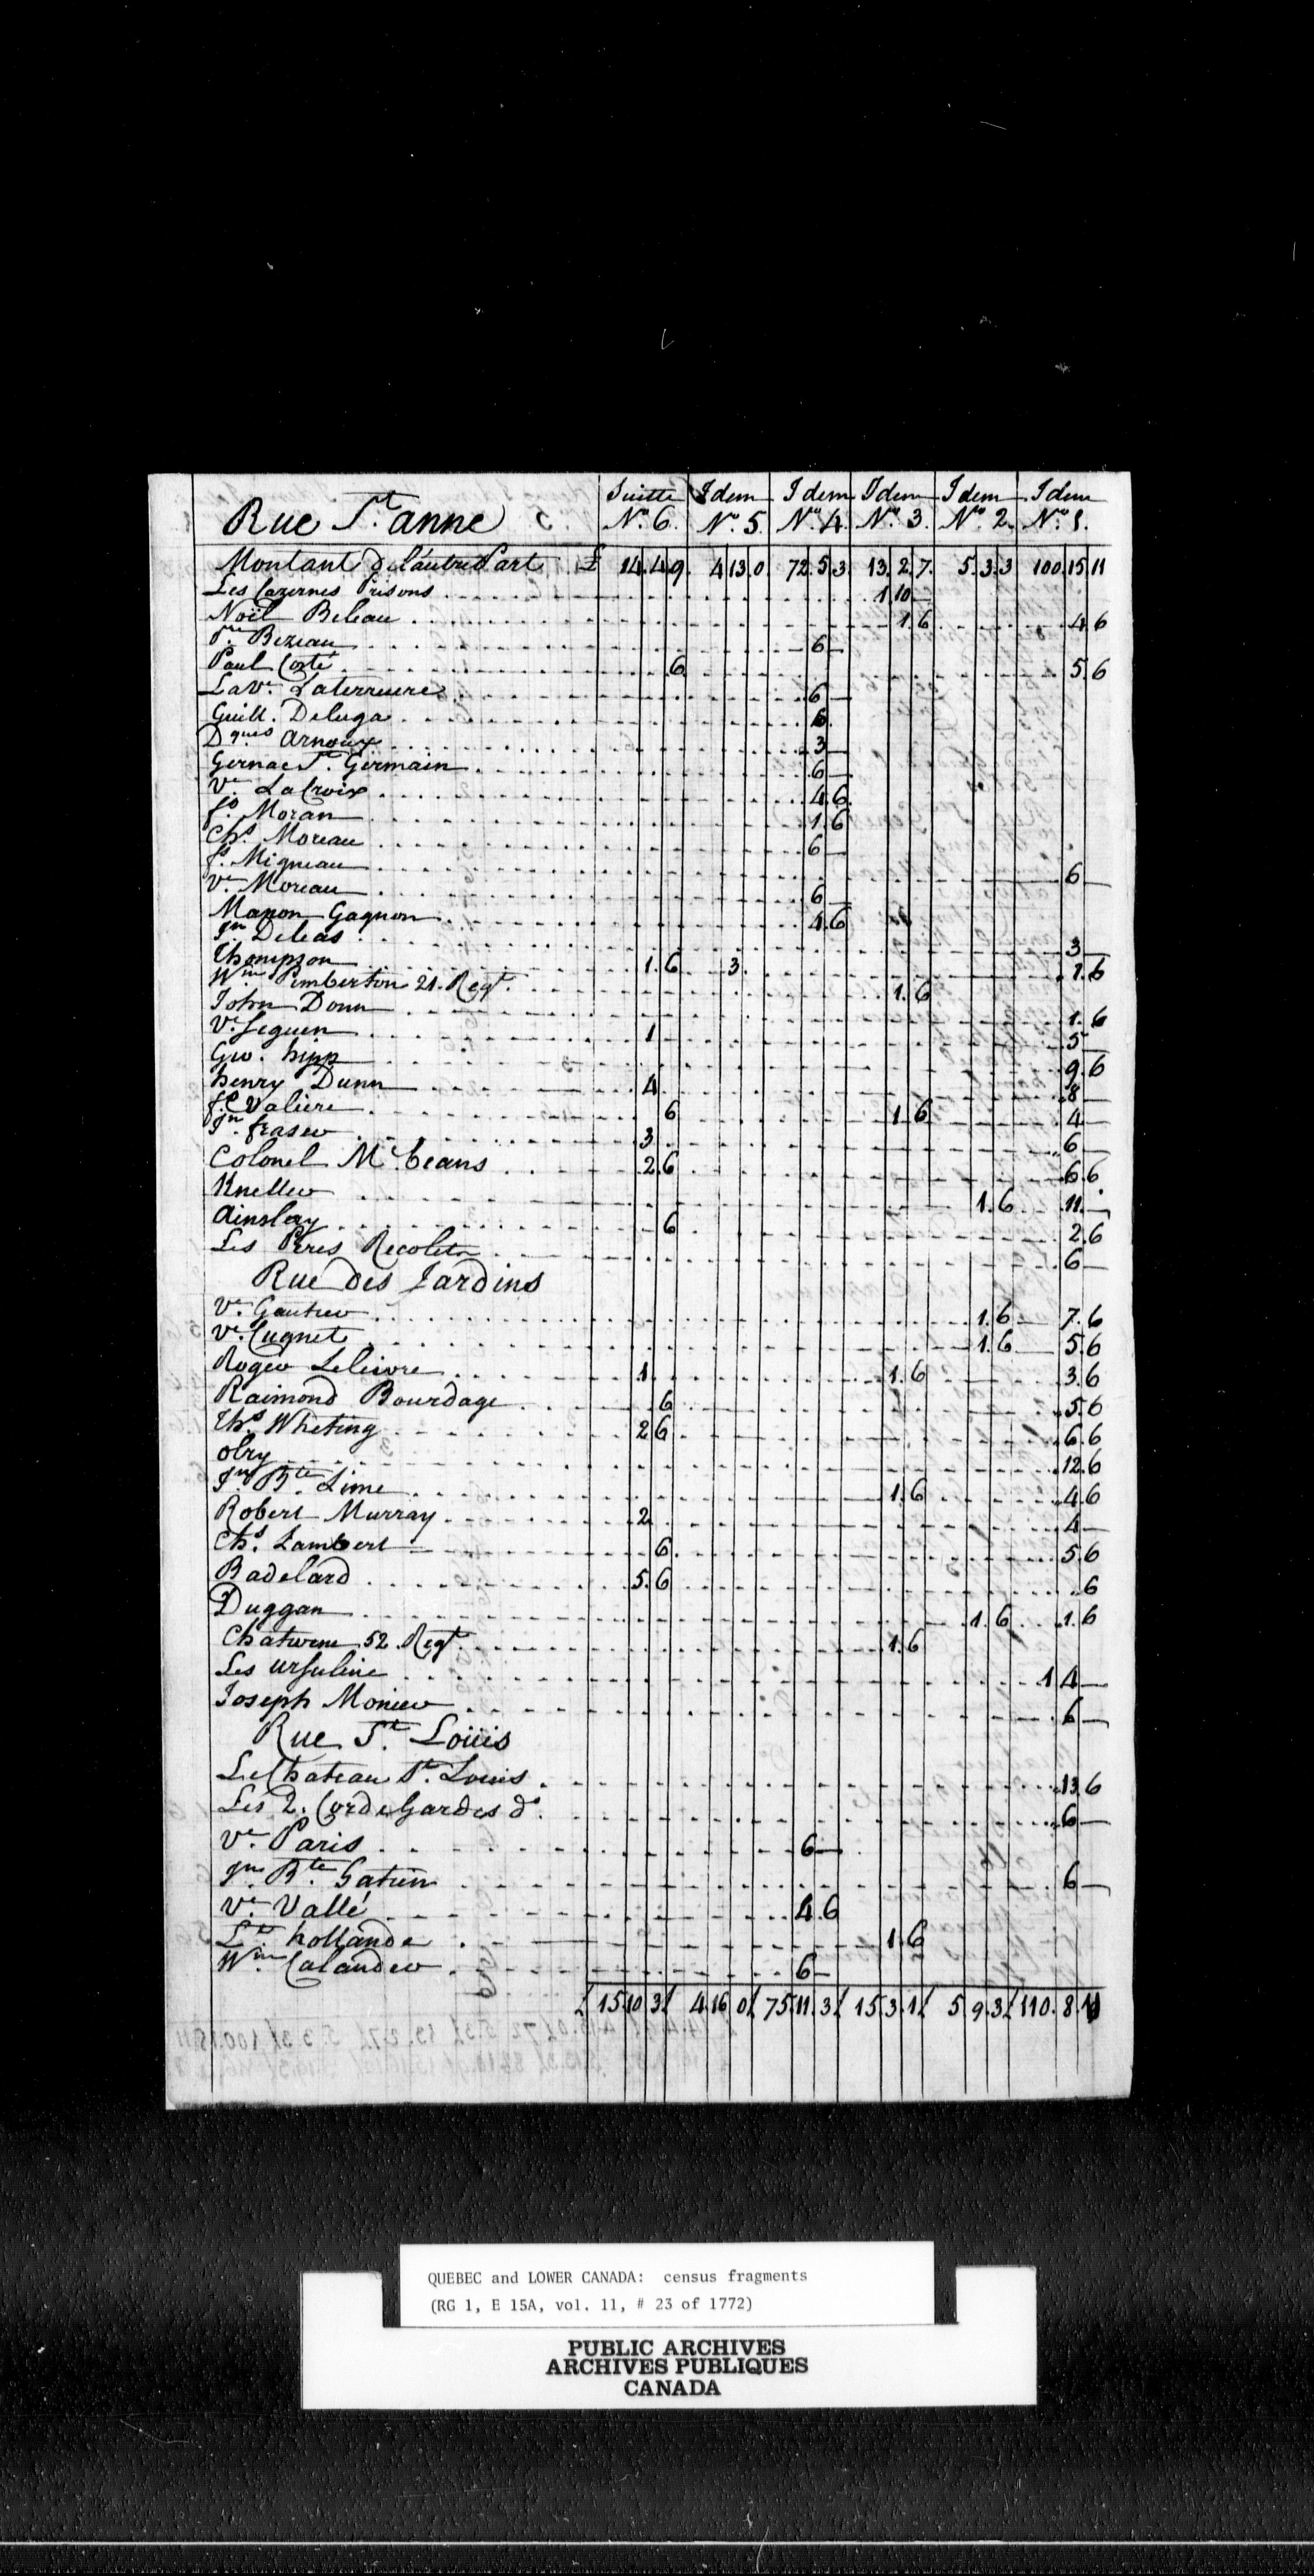 Suitte Idem Idem Idem Idem Idem
Rue St. anne c. No. 6. No. 5. No. 4. No. 3. No. 2. No. 1.
Montant De l'autre Part £ 14.4.9. 4 13.0 72.5.3 13.2.7. 5.3.3 100.15.11
Les Cazernes Prisons 1.10
Noël Beleau 1.6 4.6
Bezeau 6
Paul Coté 6 5.6
La ve. Laterriere 6
Guill. Deluga 6
Dques Arnoux 3
Gernac St. Germain 6
Ve. La Croix 4.6
fs. Moran 1.6
Chs. Moreau 6
fs. Migneau 6
Ve. Moreau 6
Manon Gagnon 4.6
Jn Deleas 3
Thompson 1.6 3. 1.6
Wm Pimberton 21. Regt. 1.6
John Donn 1.6
Ve. Seguen 1 5
Geo. hipp 9.6
henry Dunn 4 8
fs. Valiere 6 1.6 4
Jn fraser 3 6
Colonel Mc. Ceans 2.6 6.6
Kneller 1.6 11.
Ainslay 6 2.6
Les Peres Recolets 6
Rue Des Jardins
Ve. Gautier 1.6 7.6
Ve. Cugnet 1.6 5.6
Roger Lelievre 1 1.6 3.6
Raimond Bourdage 6 5.6
Ths Wheting 2 6 6.6
Olry 12.6
Jn Bte. Lime 1.6 4.6
Robert Murray 2 4
Chs. Lambert 6 5.6
Badelard 5.6 .6
Duggan 1.6 1.6
Chaturne 52. Regt 1.6
Les Ursuline 1 4
Joseph Monier 6
Rue St. Loüis
Le Chateau St. Louis 13.6
Les 2. Cordegardes do. 6
Ve. Paris 6
Jn Bte. Gatien 6
Ve. Vallé 4.6
Lt. hollande 1.6
Wm. Calander 6
£ 15 10 3/ 4 16 0/ 75 11.3/ 15 3.1/ 5 9.3/ 110.8 11
QUEBEC and LOWER CANADA: census fragments
(RG 1, E 15A, vol. 11, # 23 of 1772)
PUBLIC ARCHIVES
ARCHIVES PUBLIQUES
CANADA